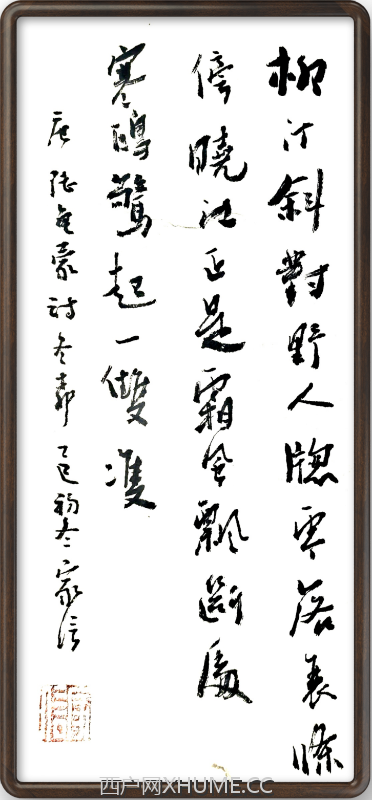 柳汀斜對野人牕零落衰條
傍曉江正是霜風飄斷處
寒鷗驚起一雙雙
唐陸龜蒙詩冬柳乙巳初冬家信
西户网XHUME.CC